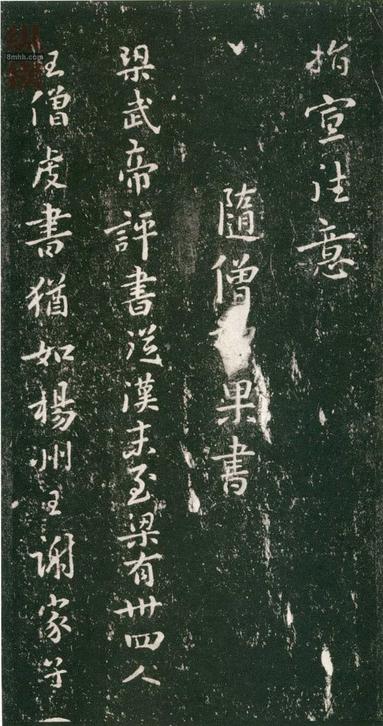 指宣意
隨僧果書
梁武帝評書從漢末至梁有卅四人
王僧虔書猶如楊州王謝家子一
8mhh.com